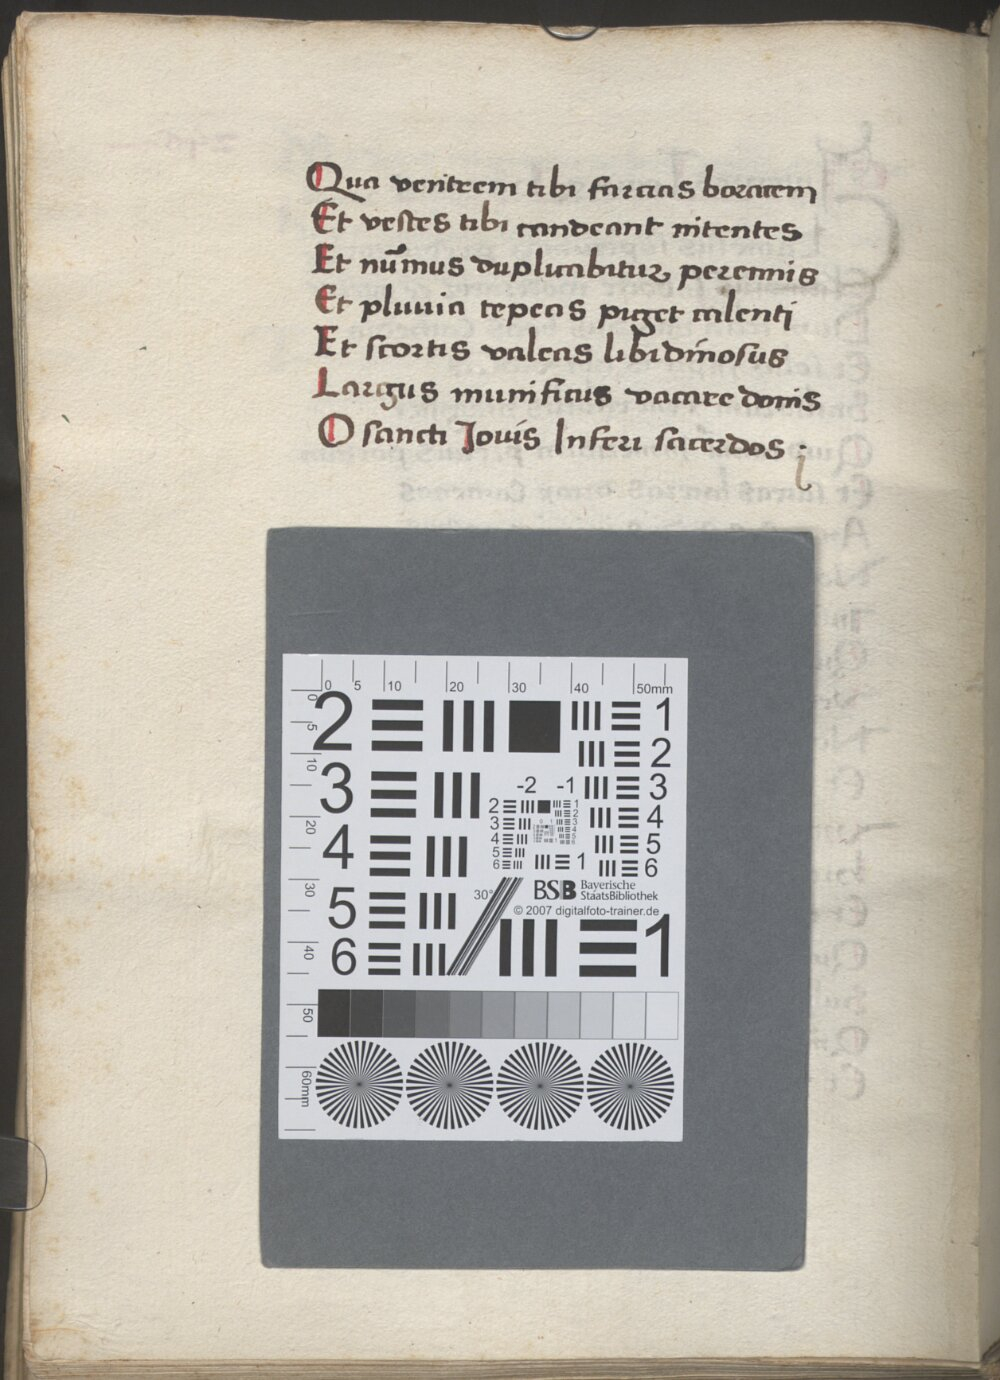 Qua ventrem tibi farcias boratem
Et vestes tibi candeant nitentes
Et nūmus duplicabitur perennis
Et pluvia tepeas piget calenti
Et scortis valeas libidinosus
Largus munificus vacare donis
O sancti Jovis Inferi sacerdos ;
0 5 10 20 30 40 50mm
0 5 10 20 30 40 50 60mm
2 1
2
3 -2 -1 3
4 4
5
6
5
6 1
2
3
4
5
6
1
30°
BSB Bayerische
StaatsBibliothek
© 2007 digitalfoto-trainer.de